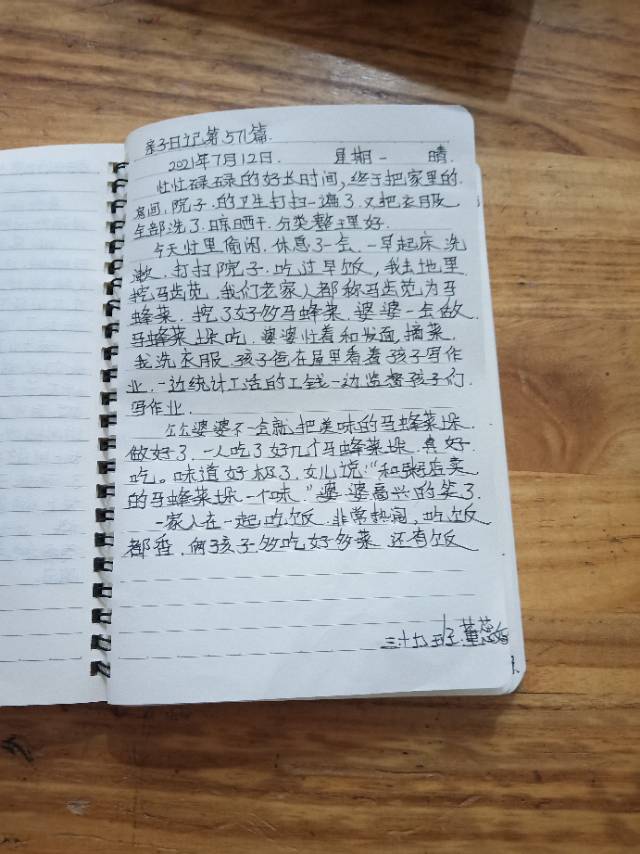 亲子日记第571篇.
2021年7月12日. 星期一 晴.
忙忙碌碌的好长时间,终于把家里的
房间,院子.的卫生打扫一遍了.又把衣服
全部洗了.晾晒干.分类整理好.
今天忙里偷闲.休息了一会.一早起床.洗
漱.打扫院子.吃过早饭,我去地里
挖马齿苋.我们老家人都称马齿苋为马
蜂菜.挖了好多马蜂菜.婆婆一会做
马蜂菜垛吃.婆婆忙着和发面,摘菜.
我洗衣服.孩子爸在屋里看着孩子写作
业.一边统计工活的工钱一边监督孩子们
写作业.
婆婆不一会就把美味的马蜂菜垛
做好了.一人吃了好几个马蜂菜垛.真好
吃。味道好极了.女儿说:“和
的马蜂菜垛一个味.”婆婆高兴的笑了.
一家人在一起吃饭.非常热闹,吃饭
都香.俩孩子多吃好多菜.还有饭